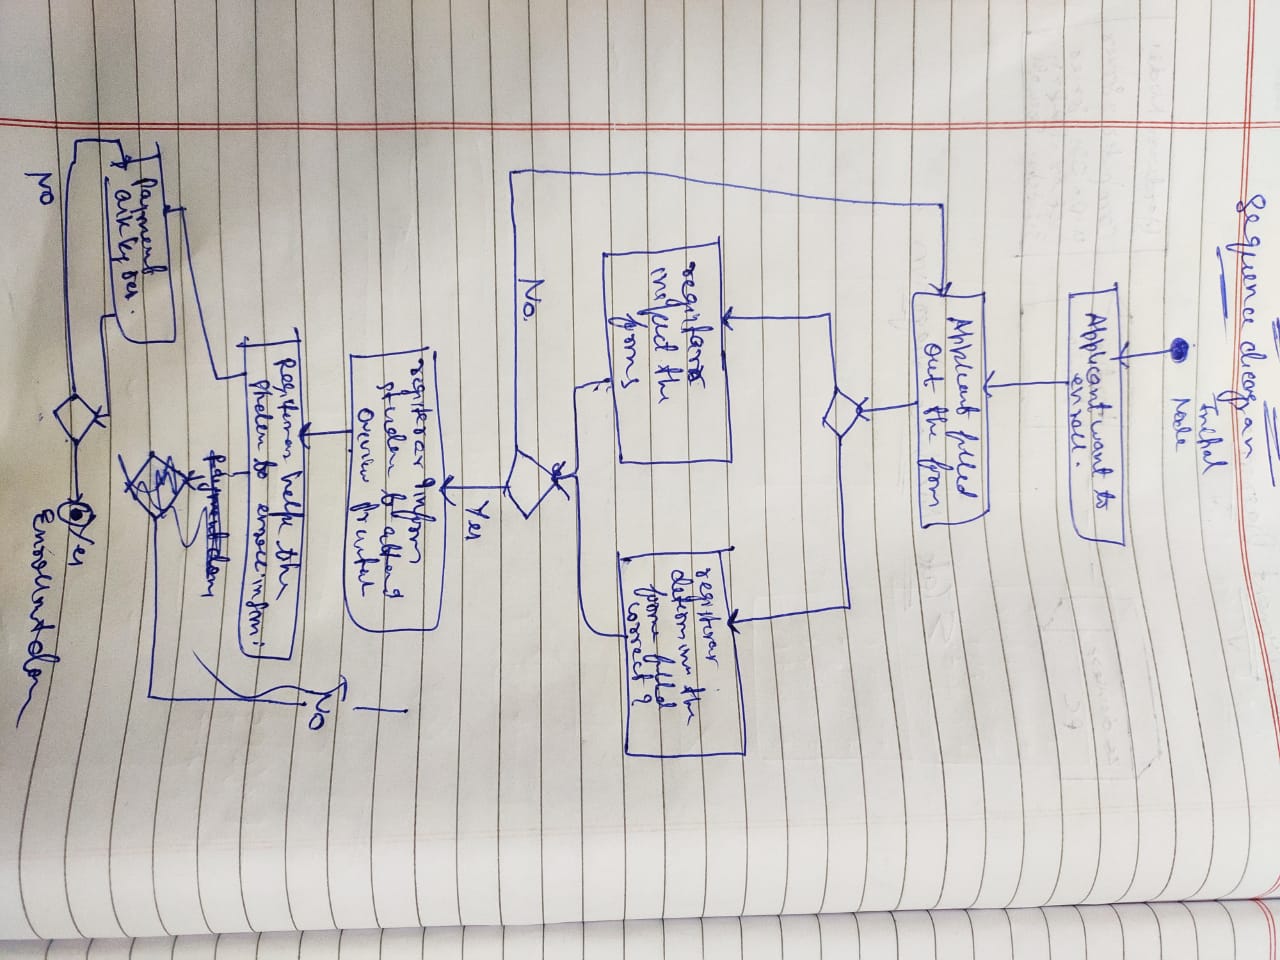 Sequence diagram
Initial
Node
Applicant want to
enroll.
Applicant filled
out the form
registrar
inspect the
forms
registerar
determine the
form filled
correct?
No.
Yes
registerar inform
studen to attend
overview
No
Registerar helps the
studen to enroll in
Payment don
Payment
Yes
No
Enrollment don